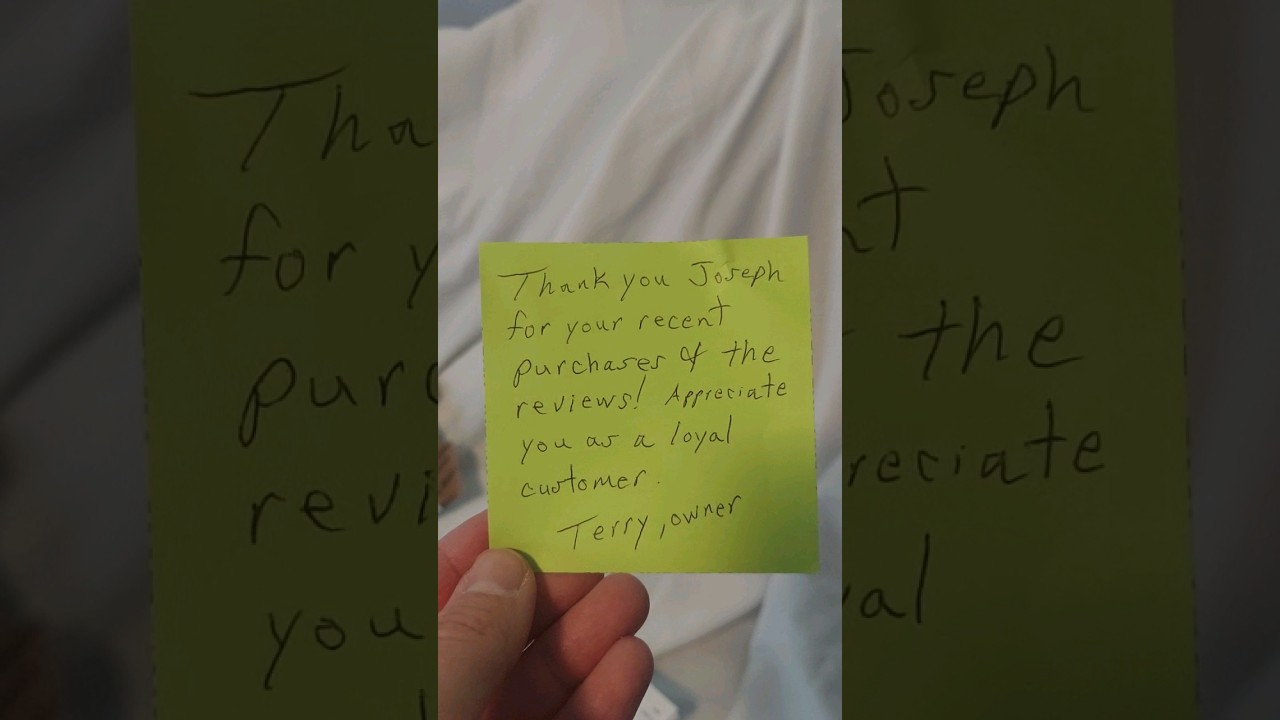 Thank you Joseph
for your recent
purchases & the
reviews! Appreciate
you as a loyal
customer.
Terry, owner